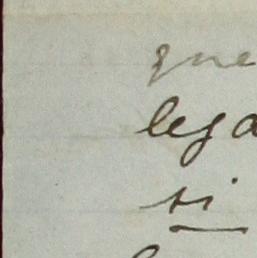 que
lega
si